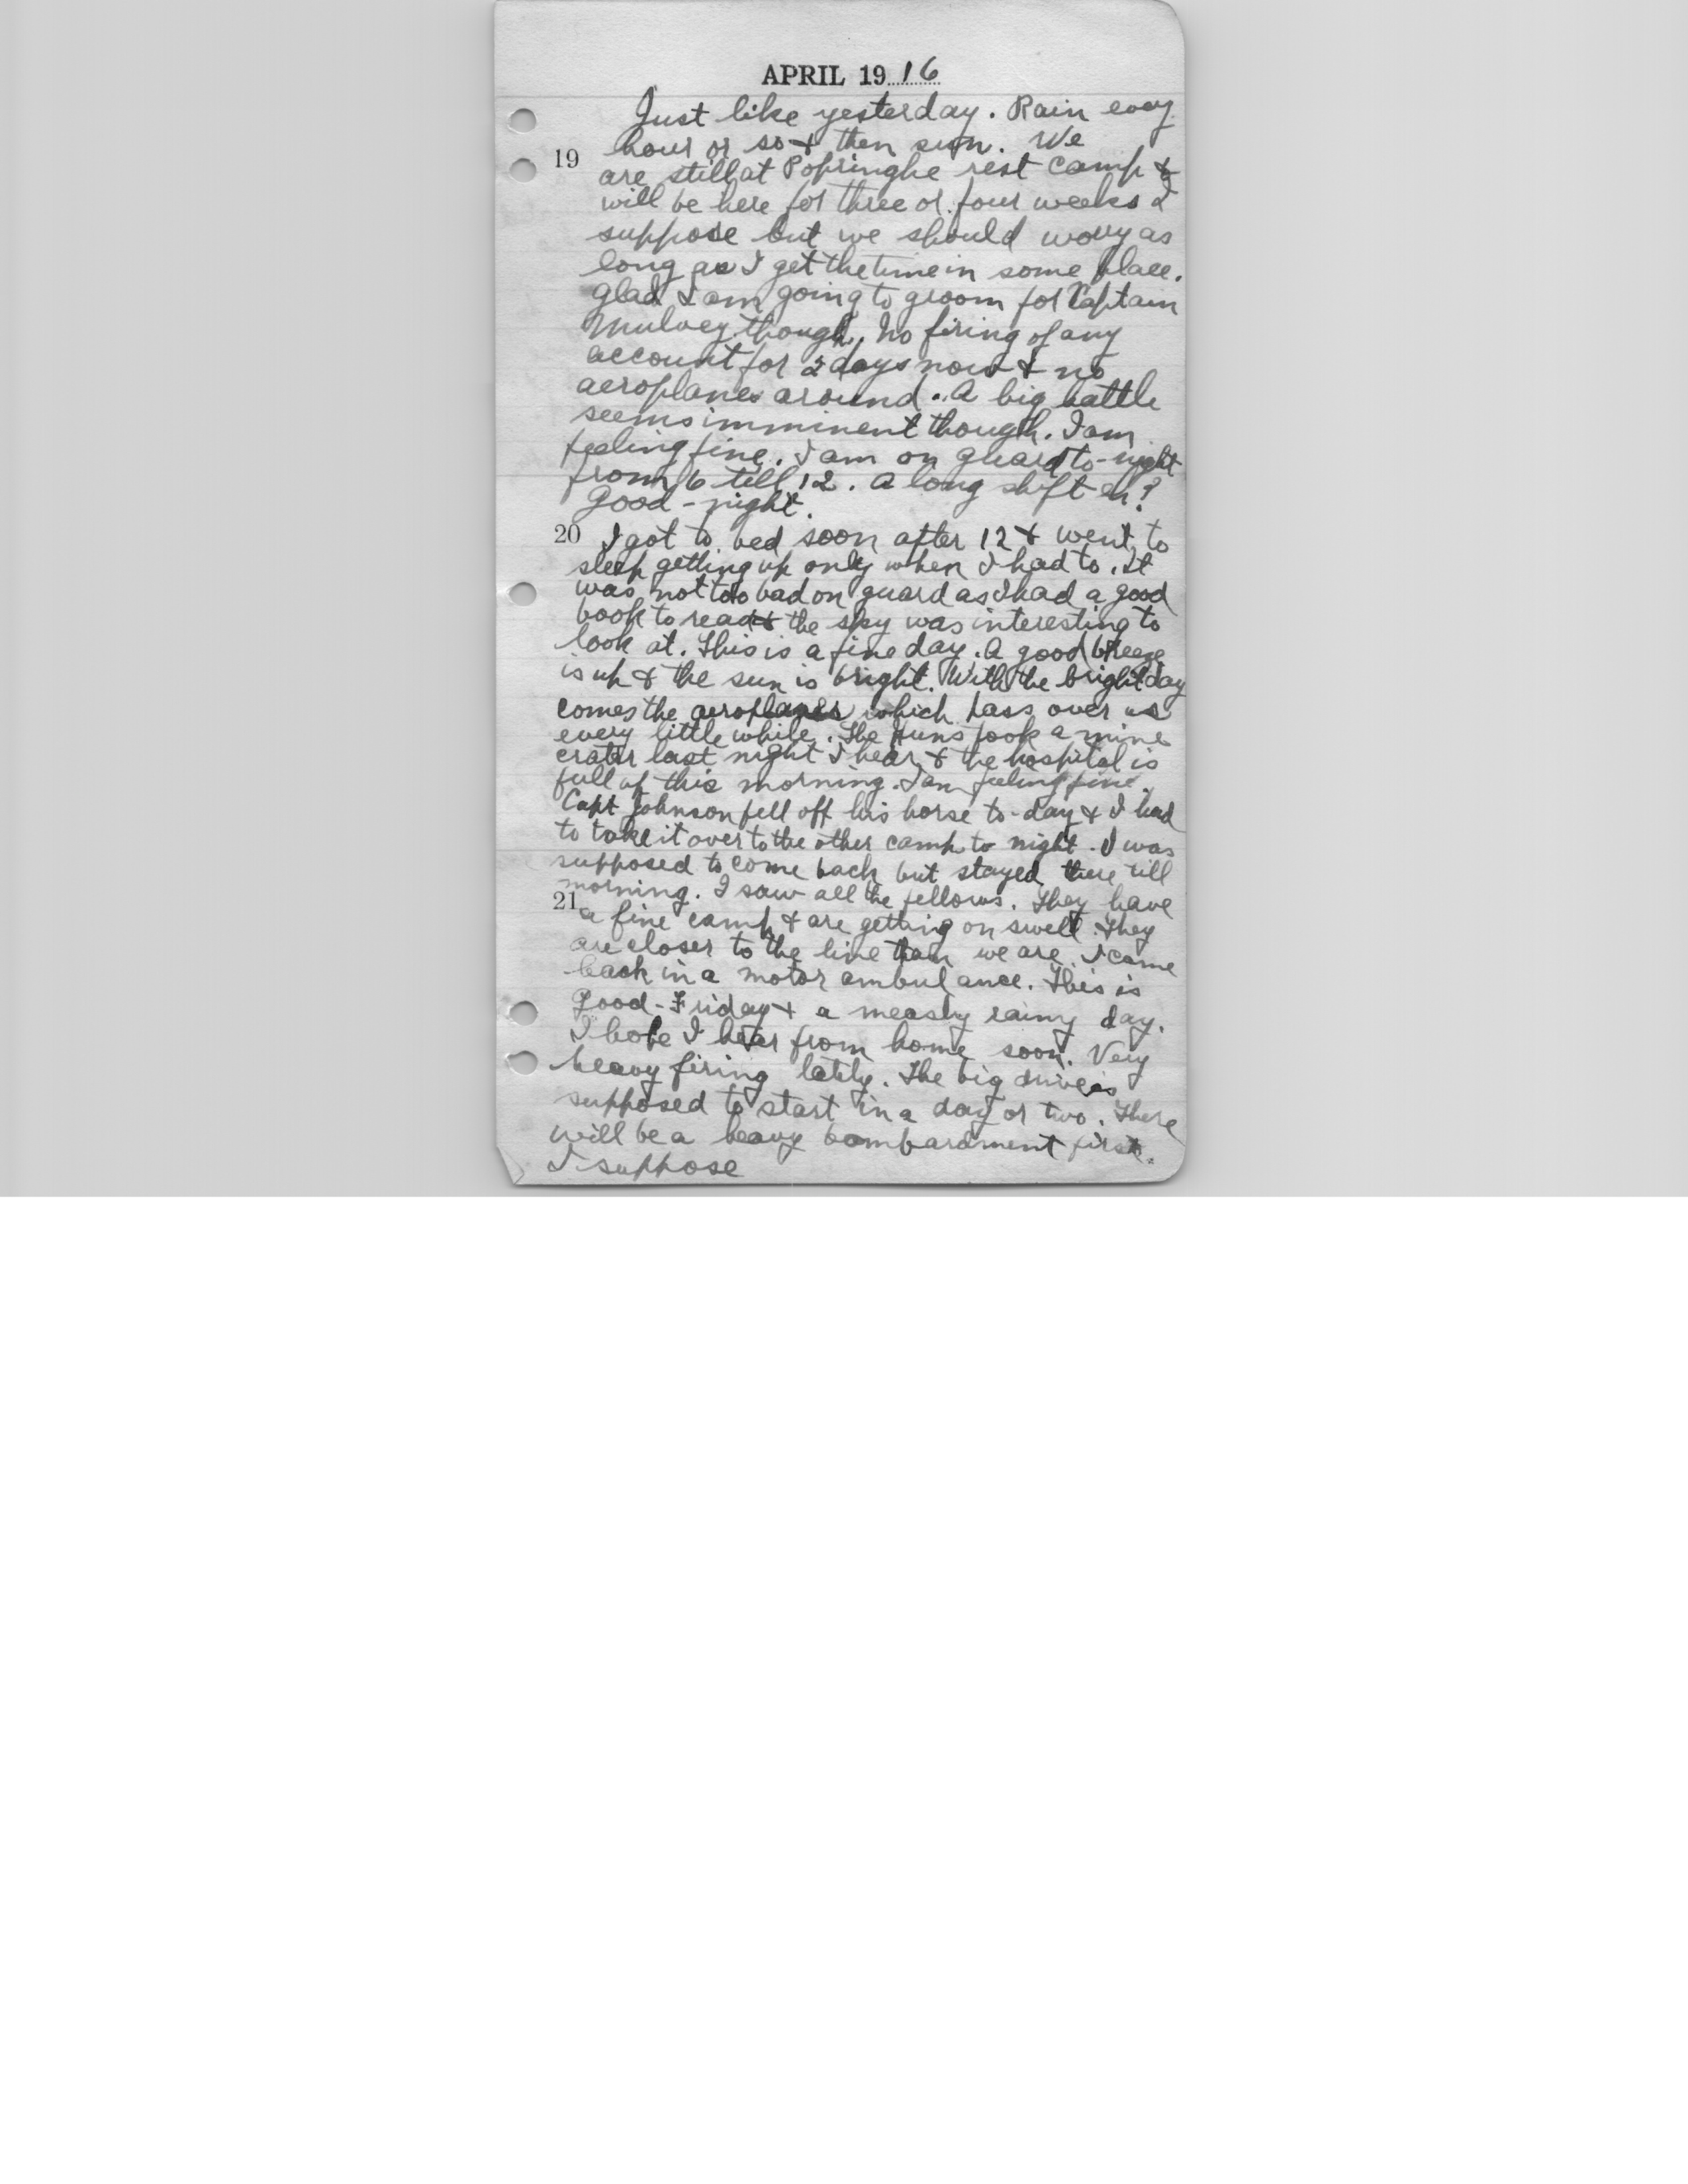 APRIL 1916
Just like yesterday. Rain every
19 hour or so & then sun. We
are still at Popringhe rest camp &
will be here for three or four weeks I
suppose but we should worry as
long as I get the time in some place.
Glad I am going to groom for Captain
Mulvey though. No firing of any
account for 2 days now & no
aeroplanes around. A big battle
seems imminent though. I am
feeling fine. I am on guard to-night
from 6 till 12. A long shift eh?
Good-night.
20 I got to bed soon after 12 & went to
sleep getting up only when I had to. It
was not too bad on guard as I had a good
book to read & the sky was interesting to
look at. This is a fine day. A good breeze
is up & the sun is bright. With the bright day
comes the aeroplanes which pass over us
every little while. The Huns took a mine
crater last night I hear & the hospital is
full up this morning. I am feeling fine.
Capt Johnson fell off his horse to-day & I had
to take it over to the other camp to night. I was
supposed to come back but stayed there till
morning. I saw all the fellows. They have
21 a fine camp & are getting on swell. They
are closer to the line than we are. I came
back in a motor ambulance. This is
Good-Friday & a measly rainy day.
I hope I hear from home soon. Very
heavy firing lately. The big drive is
supposed to start in a day or two. There
will be a heavy bombardment first.
I suppose